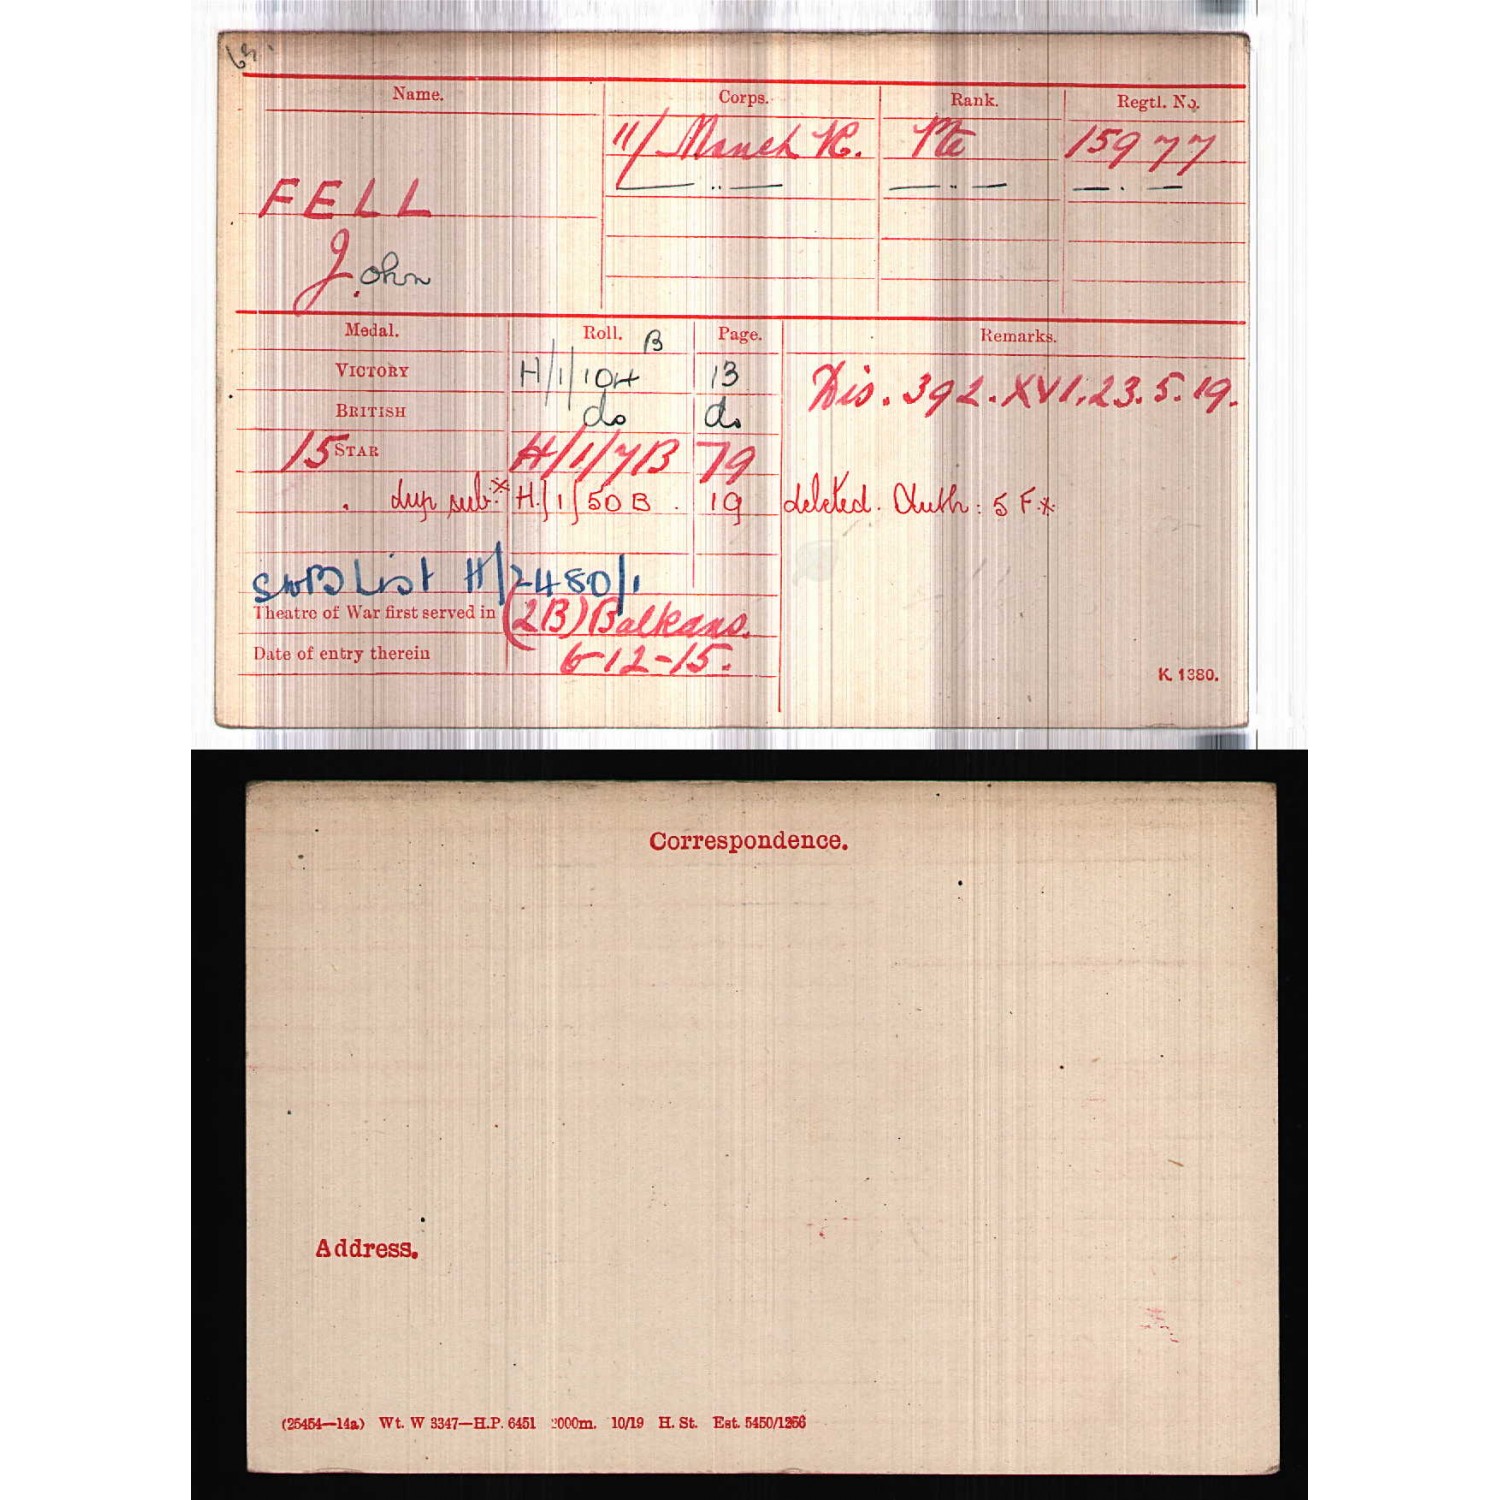 63.
Name. Corps. Rank. Regtl. No.
11/Manch R. Pte 15977
— " — — " — — " —
FELL
John
Medal. Roll. Page. Remarks.
VICTORY H/1/104 B 13 Dis. 392. XVI. 23.5.19.
BRITISH do do
15 STAR H/1/7B 79
dup sub.* H/1/50 B. 19 deleted. Auth: 5 F*
SWB List H/2480/1
Theatre of War first served in (2B) Balkans.
Date of entry therein 6-12-15.
K. 1380.
Correspondence.
Address.
(25454—14a) Wt. W 3347—H.P. 6451 2000m. 10/19 H. St. Est. 5450/1256